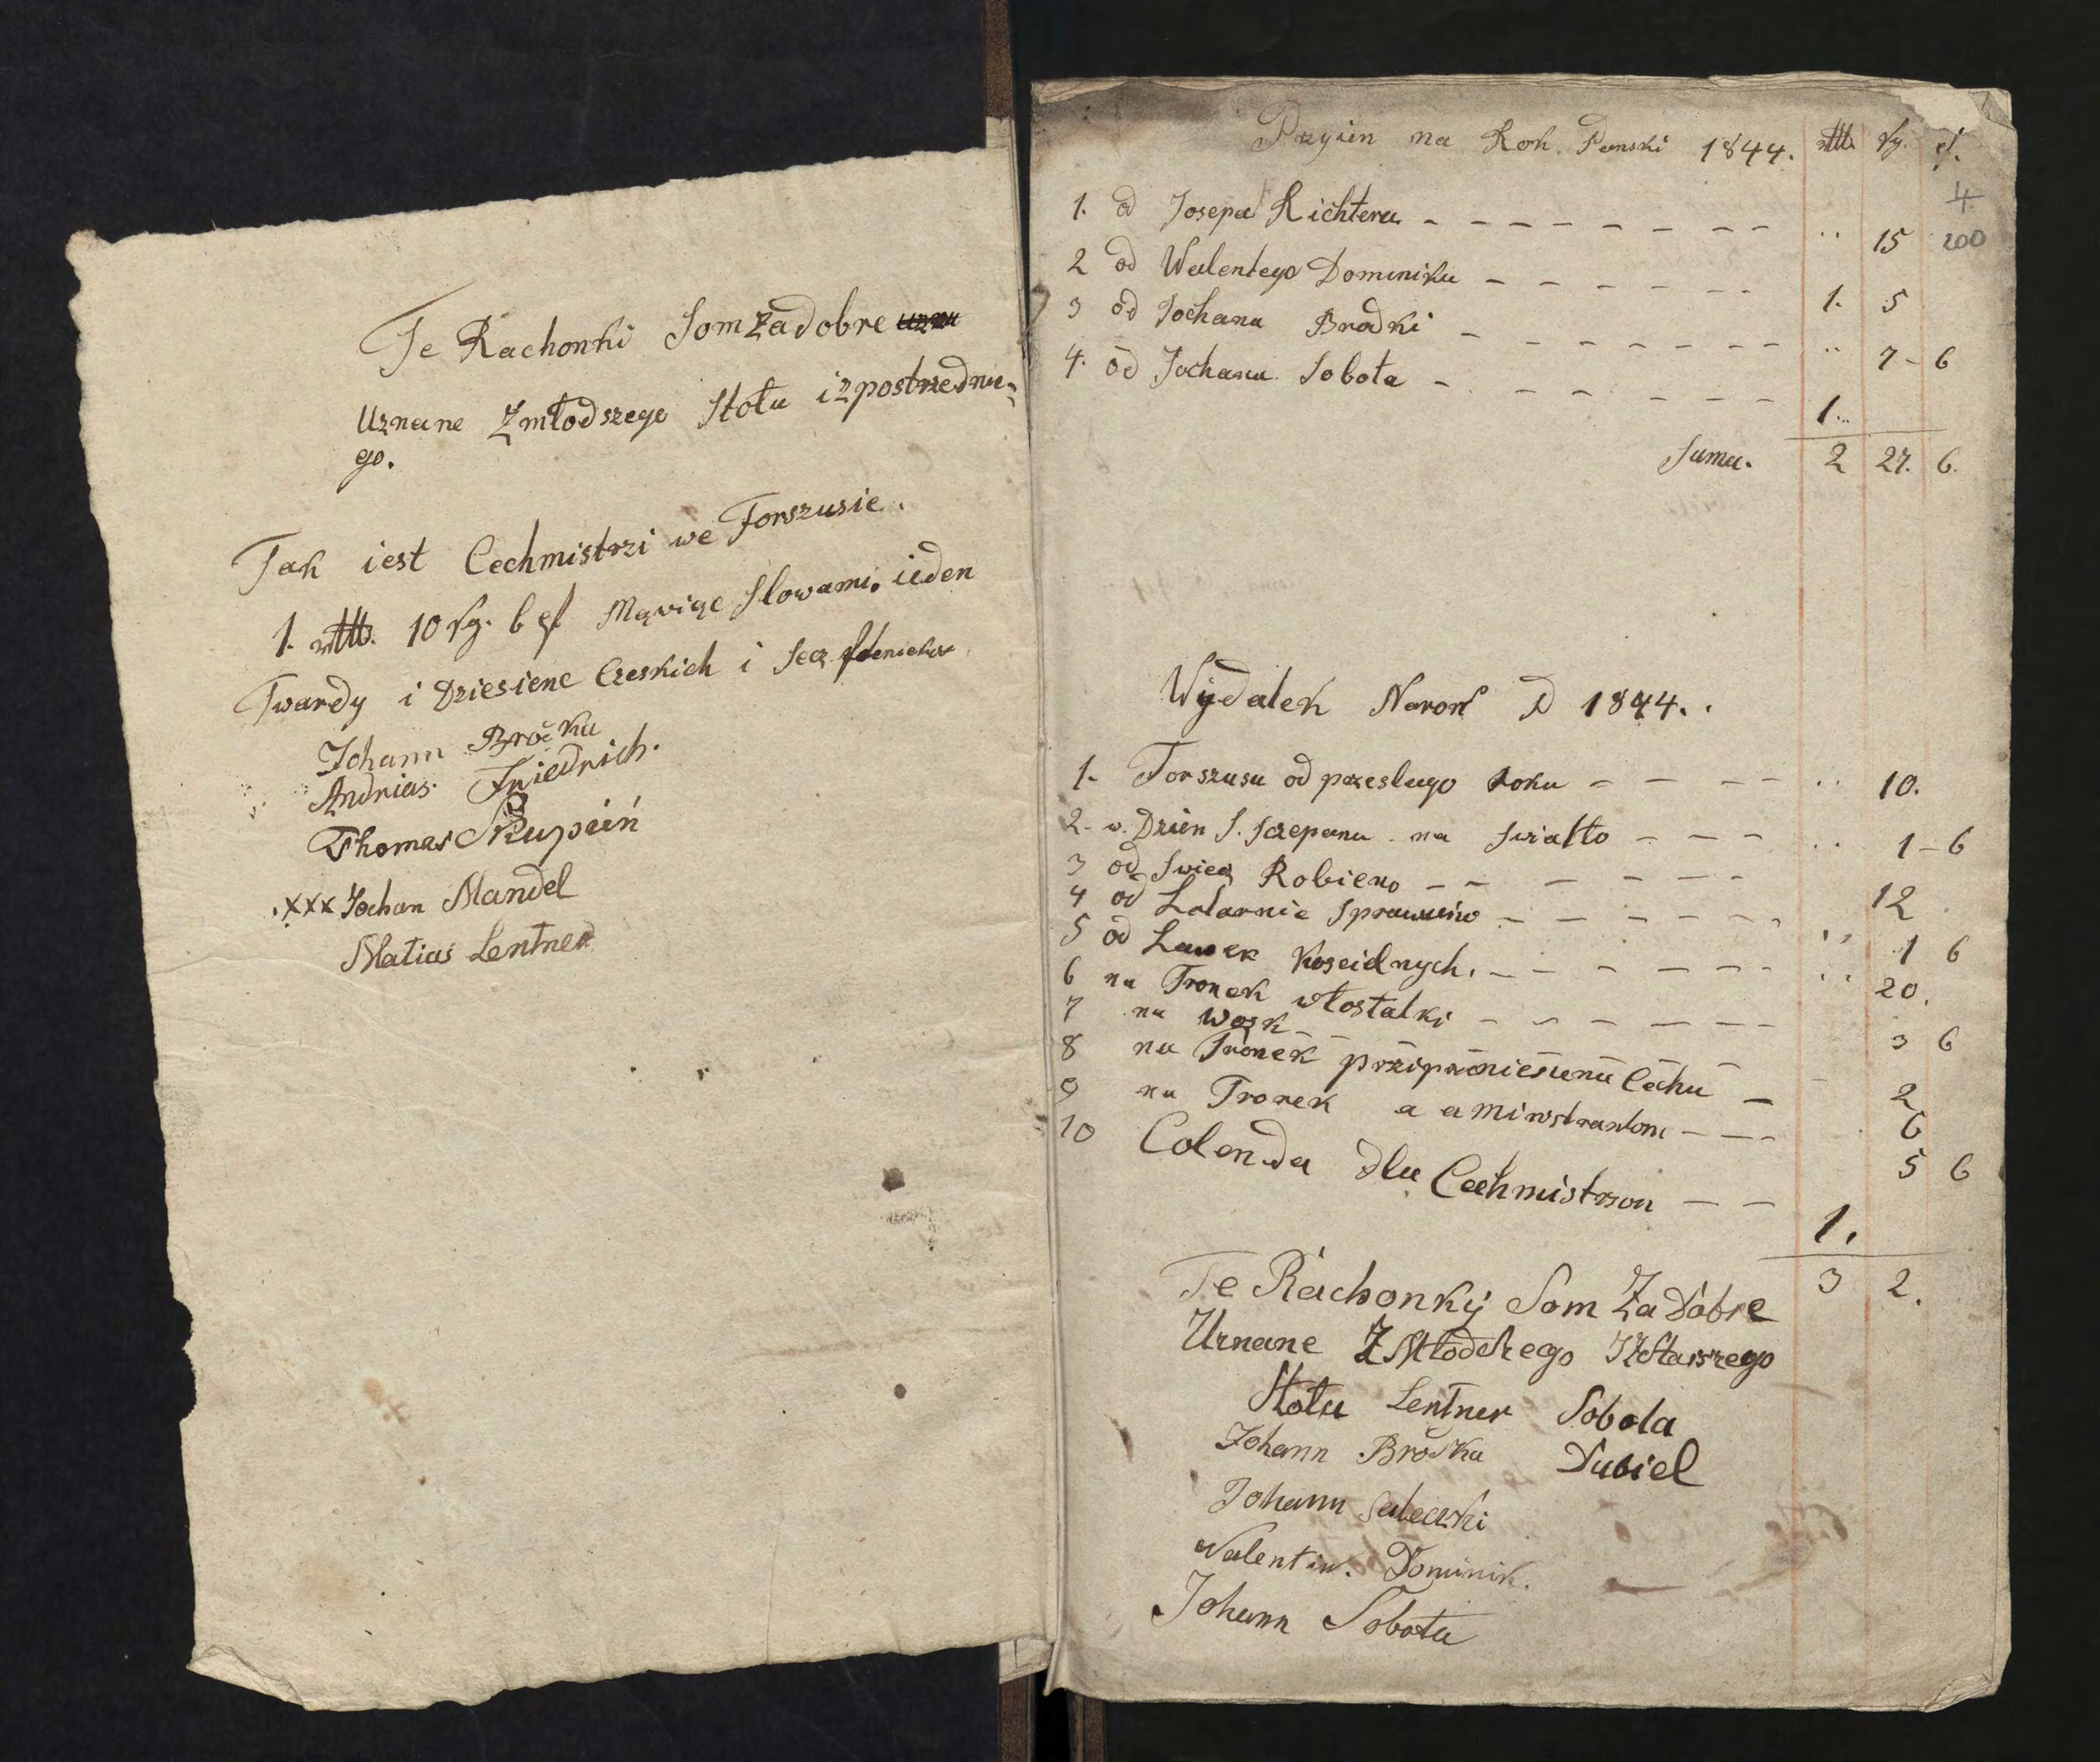 Te Rachonki Som Za dobre
Uznane Zmłodszego Stołu i zpostrzednu-
go.
Tak iest Cechmistrzi we Forszusie.
1. rttl. 10 sg. 6 Mąviąc Slowami. ieden
Twardy i Dziesienc Czeskich i
Johann Brożka
Andrias Friedrich.
Thomas Skupień
xxx Jochan Mandel
Matias Lentner
Przyien na Rok Panski 1844. rttl. sg.
4
1. od Josepa Richtera 15 200
2 od Walentego Dominika 1. 5
3 od Jochana Brodki 7-6
4. od Jochana Sobota 1.
Suma. 2 27. 6.
Wÿdatek Narok D 1844.
1. Forszusu od przeslugo Roku 10.
2. w. Dzien S. Sczepana na Swiatło 1-6
3 od Swiec Robieno 12
4 od Latarnie Sprawuiw 1 6
5 od Lawek Koscielnych. 20.
6 na Tronek włostatki 3 6
7 na Wosk 2
8 na Tronek Cechu 6
9 na Tronek a 5 6
10 Colenda dla Cechmistrzou 1.
3 2.
Te Rachonkÿ Som Za Dobre
Uznane Z Młodszego IZStarszego
Stołu Lentner Sobota
Johann Brożka Dubiel
Johann
Walentin. Dominik.
Johann Sobota